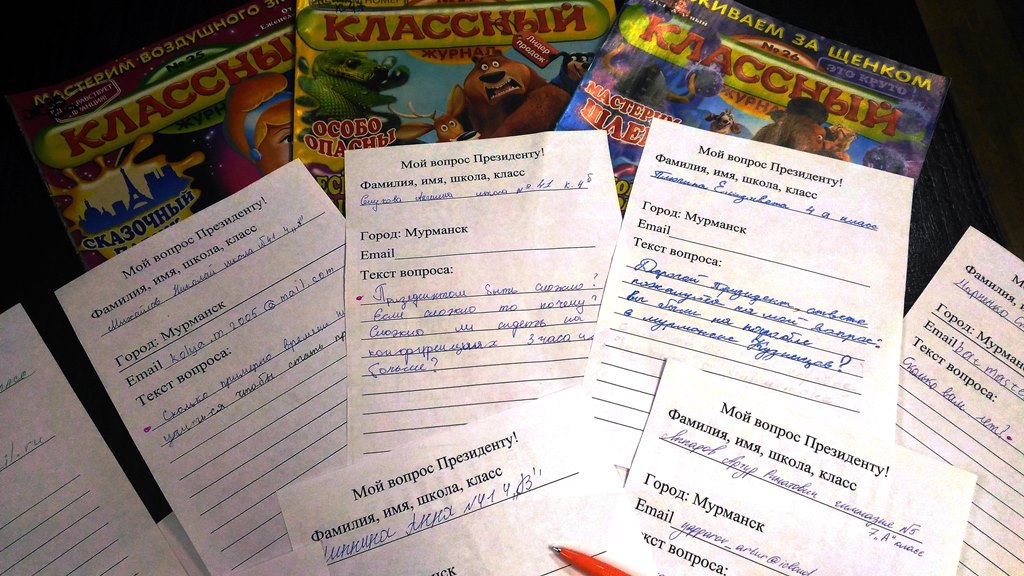 МАСТЕРИМ ВОЗДУШНОГО
№ 25
КЛАССНЫЙ
ЖУРНАЛ
СКАЗОЧНЫЙ
КЛАССНЫЙ
ЖУРНАЛ
Лидер продаж
ОСОБО
ОПАСНЫ
ЖИВАЕМ ЗА ЩЕНКОМ
№ 26
ЭТО КРУТО
КЛАССНЫЙ
ЖУРНАЛ
МАСТЕРИМ
Мой вопрос Президенту!
Фамилия, имя, школа, класс
Михайлов Николай школа №41 4„В"
Город: Мурманск
Email kolya.m2005@mail.com
Текст вопроса:
Сколько примерно времени
учиться чтобы стать
Мой вопрос Президенту!
Фамилия, имя, школа, класс
школа № 41 к. 4б
Город: Мурманск
Email
Текст вопроса:
Президентом быть сложно?
Если сложно то почему?
Сложно ли сидеть на
конфуренциях 3 часа и
больше?
Мой вопрос Президенту!
Фамилия, имя, школа, класс
Елизавета 4 а класс
Город: Мурманск
Email
Текст вопроса:
Дорогой президент, ответьте
пожалуйста на мой вопрос:
вы были на корабле
в мурманске Кузнецов?
Фамилия,
Город: Мурман
Email
Текст вопроса:
Сколько вам лет?
Мой вопрос Президенту!
Фамилия, имя, школа, класс
Анна №41 4„В"
Мой вопрос Президенту!
Фамилия, имя, школа, класс
Артур Ринатович гимназия №5
7„А" класс
Город: Мурманск
Email
кст вопроса: